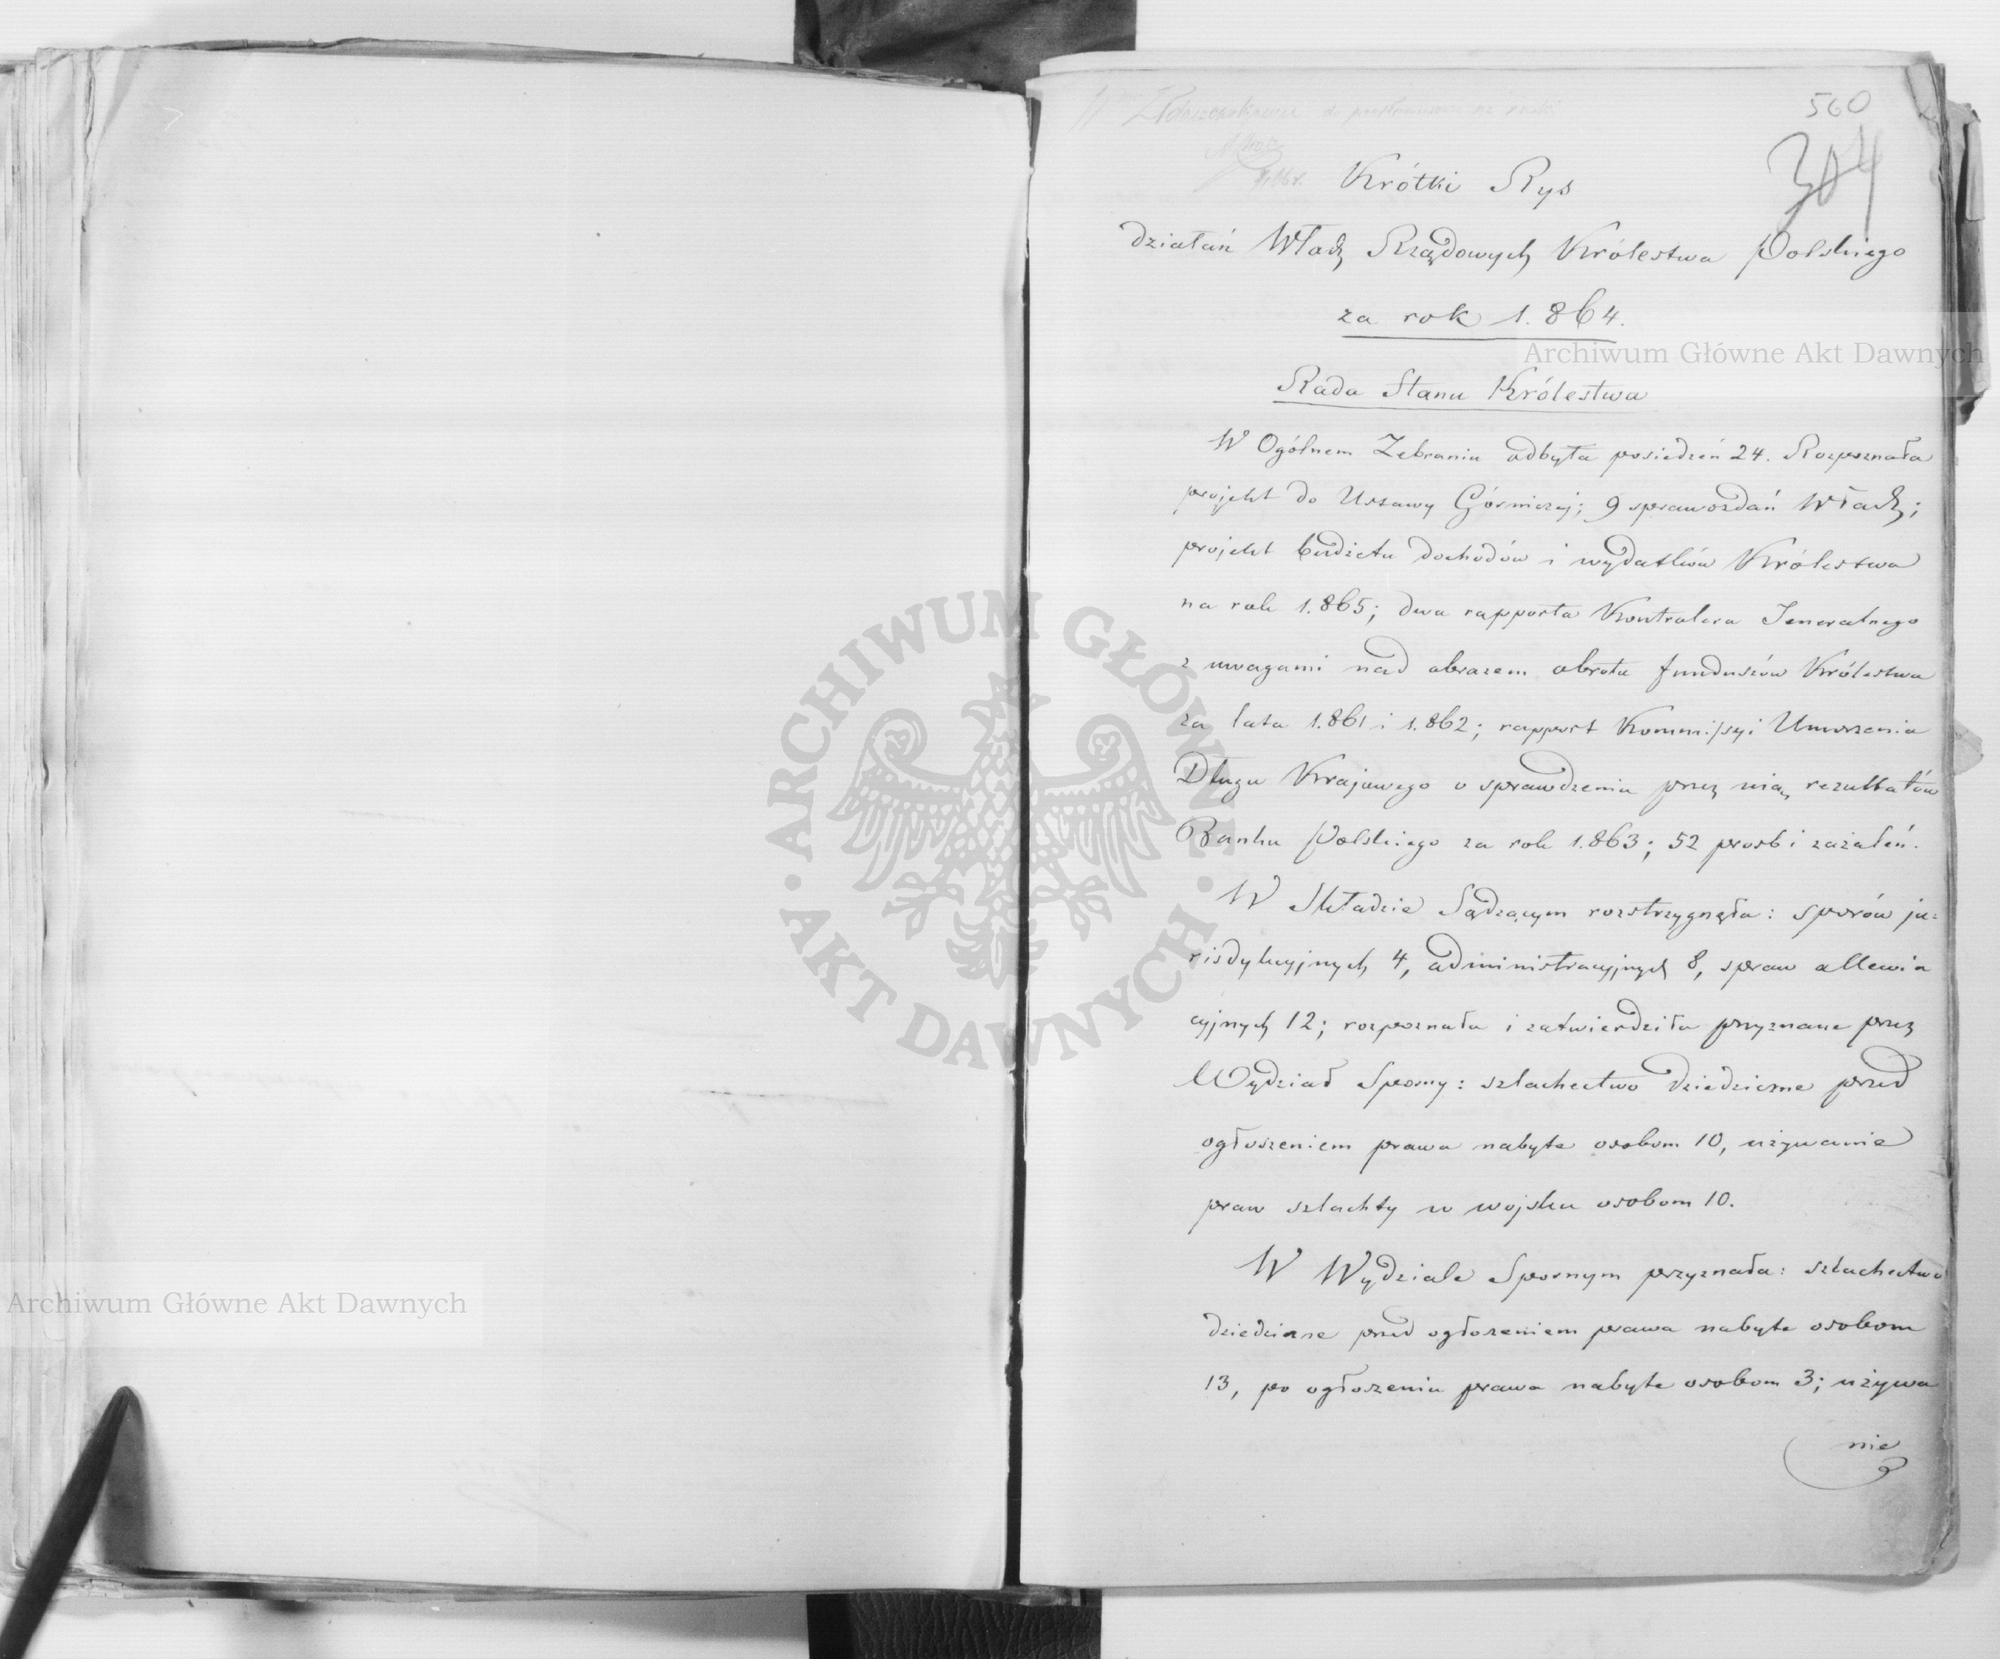 560
304
Krótki Rys
działań Władz Rządowych Królestwa Polskiego
za rok 1.864.
Rada Stanu Królestwa
W Ogólnem Zebraniu odbyła posiedzeń 24. Rozpoznała
projekt do Ustawy Górniczej; 9 sprawozdań Władz;
projekt budżetu dochodów i wydatków Królestwa
na rok 1.865; dwa rapporta Kontrolera Jeneralnego
z uwagami nad obrazem obrotu funduszów Królestwa
za lata 1.861 i 1.862; rapport Kommissyi Umorzenia
Długu Krajowego o sprawdzeniu przez nią rezultatów
Banku Polskiego za rok 1.863; 52 prośb i zażaleń.
W Składzie Sądzącym rozstrzygnęła: sporów ju=
risdykcyjnych 4, administracyjnych 8, spraw allewia
cyjnych 12; rozpoznała i zatwierdziła przyznane przez
Wydział Sporny: szlachectwo dziedziczne przed
ogłoszeniem prawa nabyte osobom 10, używanie
praw szlachty w wojsku osobom 10.
W Wydziale Spornym przyznała: szlachectwo
dziedziczne przed ogłoszeniem prawa nabyte osobom
13, po ogłoszeniu prawa nabyte osobom 3; używa
nie
Archiwum Główne Akt Dawnych
Archiwum Główne Akt Dawnych
ARCHIWUM GŁÓWNE
AKT DAWNYCH